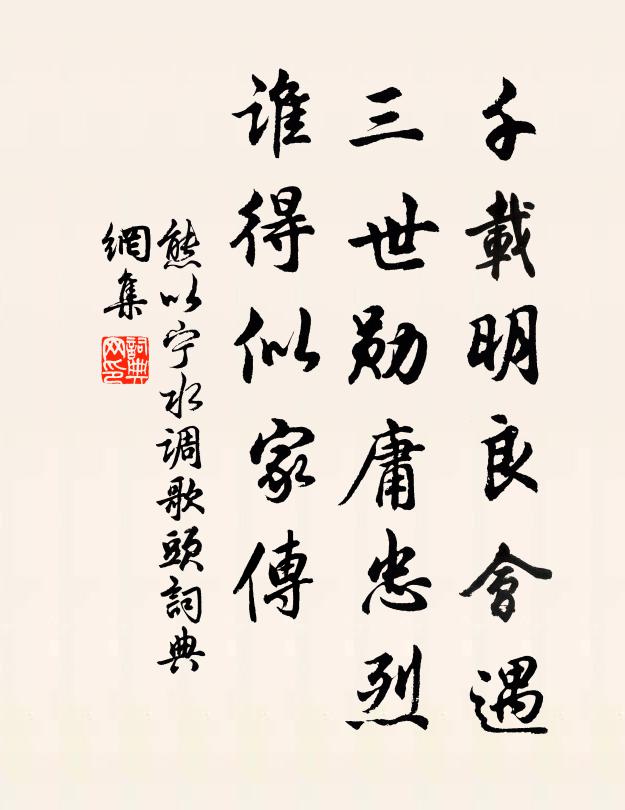 千載明良會遇
三世勛庸忠烈
誰得似家傳
熊以宁水调歌頭詞典
網集
詞典
网印